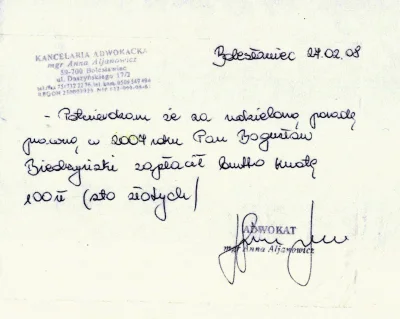 KANCELARIA ADWOKACKA
mgr Anna Aljanowicz
59-700 Bolesławiec
ul. Daszyńskiego 17/2
Bolesławiec 27.02.08
- Potwierdzam że za udzieloną poradę
prawną w 2007 roku Pan Bogusław
Biedrzyński zapłacił brutto kwotę
100zł (sto złotych)
ADWOKAT
mgr Anna Aljanowicz